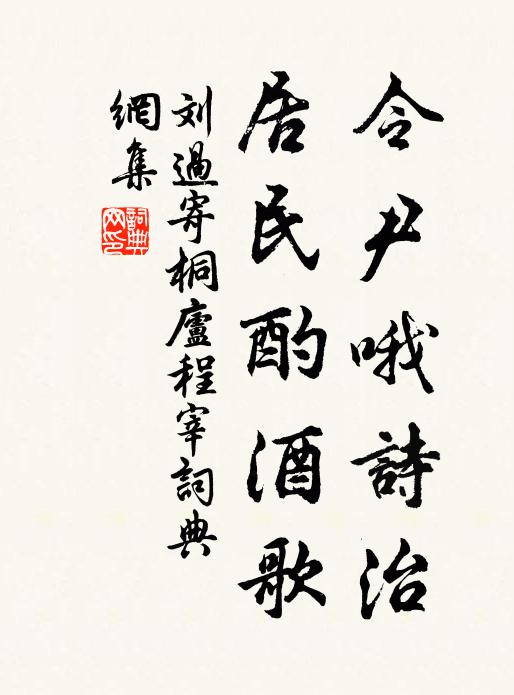 令尹哦詩治
居民酌酒歌
刘過寄桐廬程宰詞典
網集
詞典网印